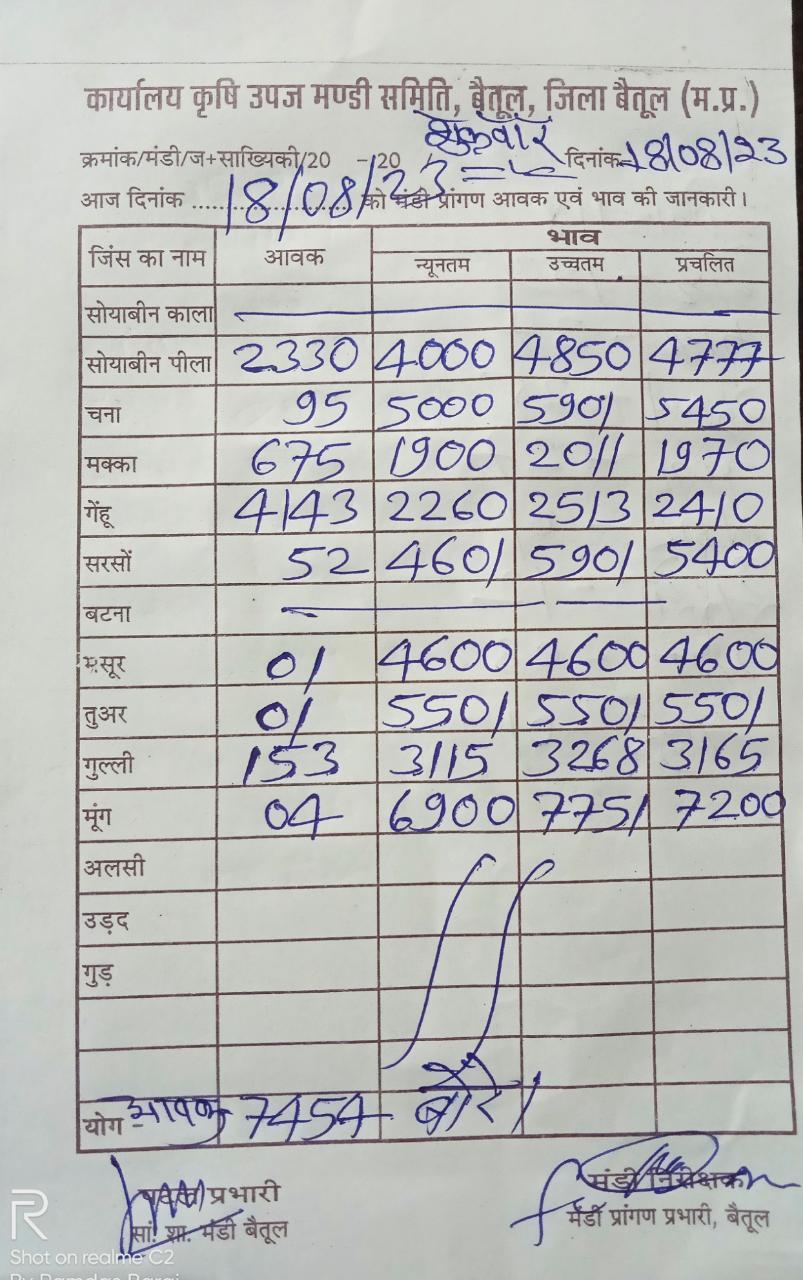 कार्यालय कृषि उपज मण्डी समिति, बैतूल, जिला बैतूल (म.प्र.)
शुक्रवार
क्रमांक/मंडी/ज+सांख्यिकी/20 - 20 दिनांक 18/08/23
आज दिनांक 18/08/23 को मंडी प्रांगण आवक एवं भाव की जानकारी।
जिंस का नाम आवक भाव
न्यूनतम उच्चतम प्रचलित
सोयाबीन काला
सोयाबीन पीला 2330 4000 4850 4777
चना 95 5000 5901 5450
मक्का 675 1900 2011 1970
गेंहू 4143 2260 2513 2410
सरसों 52 4601 5901 5400
बटना
मसूर 01 4600 4600 4600
तुअर 01 5501 5501 5501
गुल्ली 153 3115 3268 3165
मूंग 04 6900 7751 7200
अलसी
उड़द
गुड़
योग आवक 7454 बोरे
प्रभारी मंडी निरीक्षक
सां. शा. मंडी बैतूल मंडी प्रांगण प्रभारी, बैतूल
R
Shot on realme C2